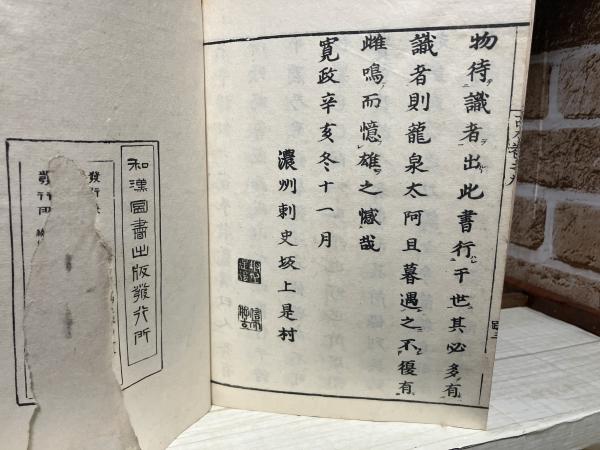 物待識者出此書行于世其必多有
識者則龍泉太阿且暮遇之不復有
雌鳴而憶雄之憾哉
寛政辛亥冬十一月
濃州刺史坂上是村
和漢圖書出版發行所